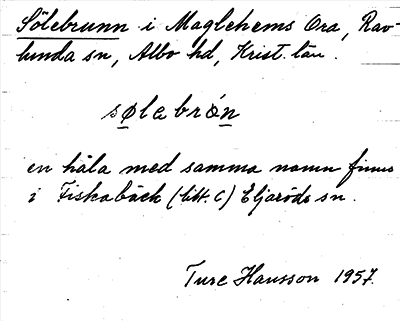 Sölebrunn i Maglehems Ora, Rav-
lunda sn, Albo hd, Krist. län.
sølebrǿn
en håla med samma namn finns
i Fiskabäck (litt. C) Eljaröds sn.
Ture Hansson 1957.